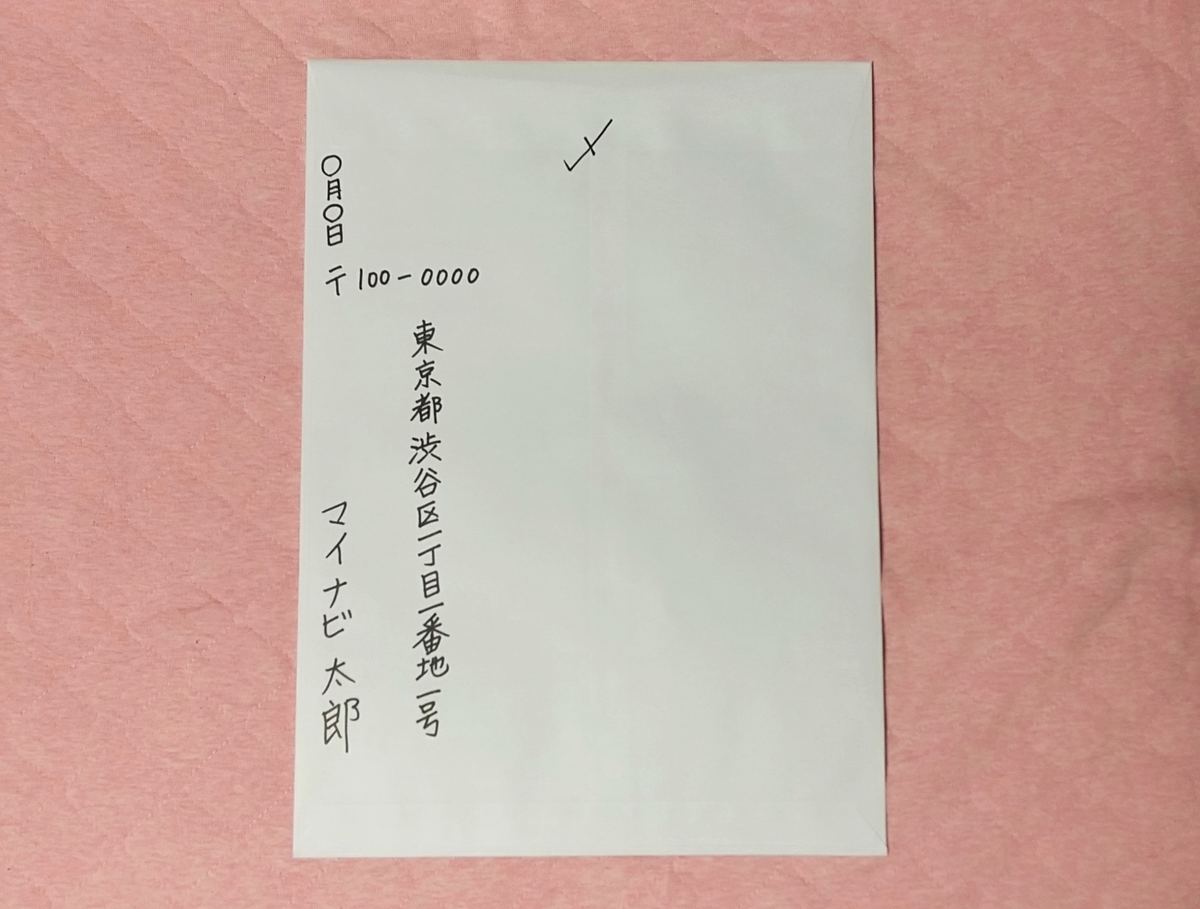 〆
〇月〇日
〒100-0000
東京都渋谷区一丁目一番地一号
マイナビ 太郎